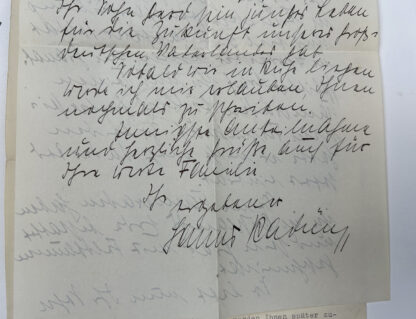 Ihr Sohn starb sein junges Leben
für die Zukunft unseres groß-
deutschen Vaterlandes gab.
Sobald wir in Ruhe liegen
werde ich mir erlauben, Ihnen
nochmals zu schreiben.
Innigste Anteilnahme
und herzliche Grüße auch für
Ihre werte Familie
Ihr ergebener
Ihnen später zu-